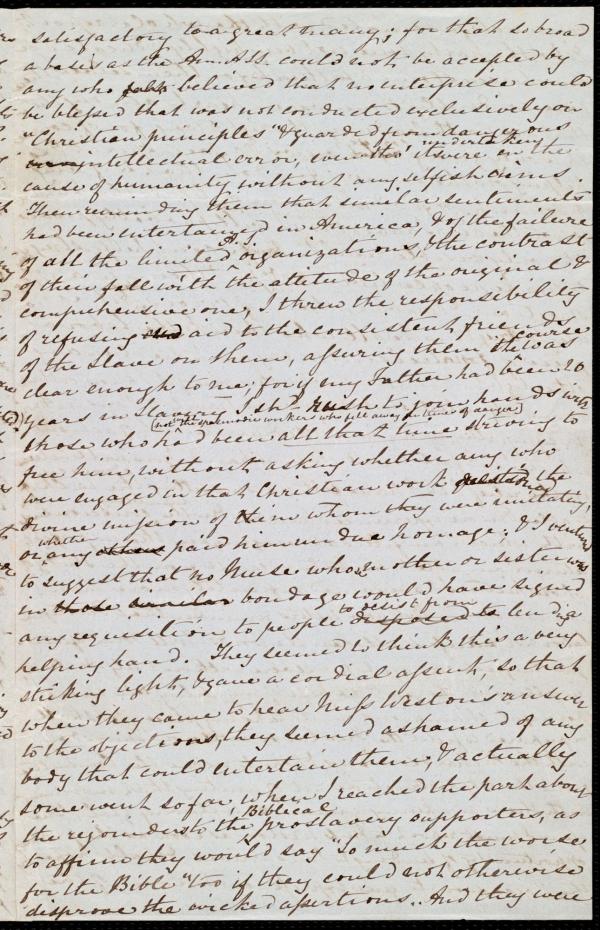 satisfactory to a great many; for that so broad
a basis as the Am. A.SS. could not be accepted by
any who felt believed that no interprise could
be blessed that was not conducted exclusively on
"Christian principles" & guarded from dangerous
intellectual error, even tho' it were undertaken in the
cause of humanity, without any selfish aims.
Then reminding them that similar sentiments
had been entertained in America, & of the failure
of all the limited A.S. organizations, & the contrast
of their fall with the attitude of the original &
comprehensive one, I threw the responsibility
of refusing and aid to the consistent friends
of the Slave on them, assuring them the course was
clear enough to me; for if my Father had been 20
years in Slavery I shd. rush to join hands with
(not the spasmodic workers who fell away in time of danger)
those who had been all that time striving to
free him, without asking whether any who
were engaged in that Christian work the
divine mission of Him whom they were imitating,
or whether any others paid him undue homage; & I ventured
to suggest that no Nurse whose mother or sister was
in those similar bondage would have signed
any requisition to people to desist from disposed to lending a
helping hand. They seemed to think this a very
striking light, & gave a cordial assent, so that
when they came to hear Miss Weston's answer
to the objections, they seemed ashamed of any
body that could entertain them, & actually
some went so far, when I reached the part about
the rejoinders to the Biblical proslavery supporters, as
to affirm they would say "So much the worse
for the Bible" too if they could not otherwise
disprove the wicked assertions.. And they were